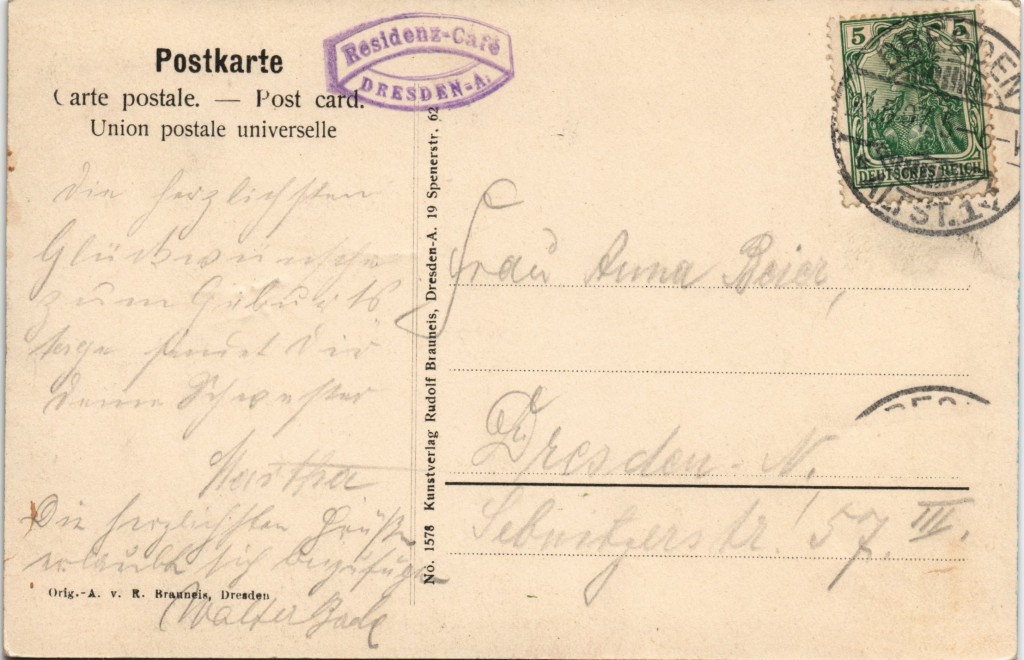 Postkarte
Carte postale. — Post card.
Union postale universelle
Residenz-Café
DRESDEN-A.
5 5
DEUTSCHES REICH
DRESDEN
ALTST. 1
die herzlichsten
Glückwünsche
zum Geburts
tage sendet Dir
deine Schwester
Martha
Die herzlichsten Grüße
erlaubt sich beizufügen
Walter
Orig.-A. v. R. Brauneis, Dresden
No. 1578 Kunstverlag Rudolf Brauneis, Dresden-A. 19 Spenerstr. 62
Frau Anna Beier,
Dresden-N.
Sebnitzerstr. 57. III.